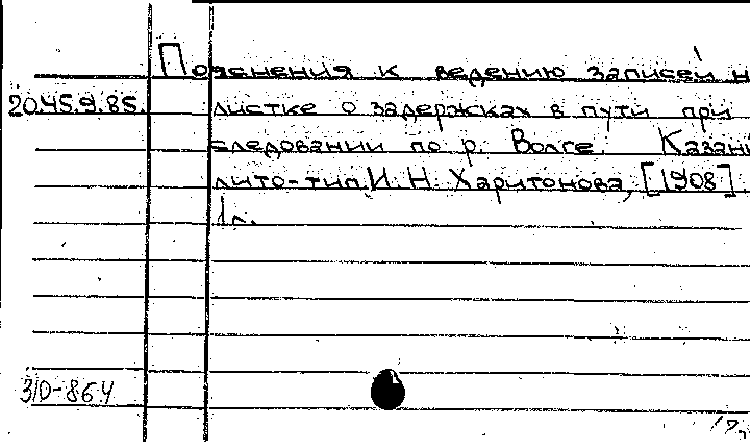 Пояснения к ведению записей н
20.45.9.85. листке о задержках в пути при
следовании по р. Волге. Казань
лито-тип. И. Н. Харитонова, [1908]
1 л.
310-864